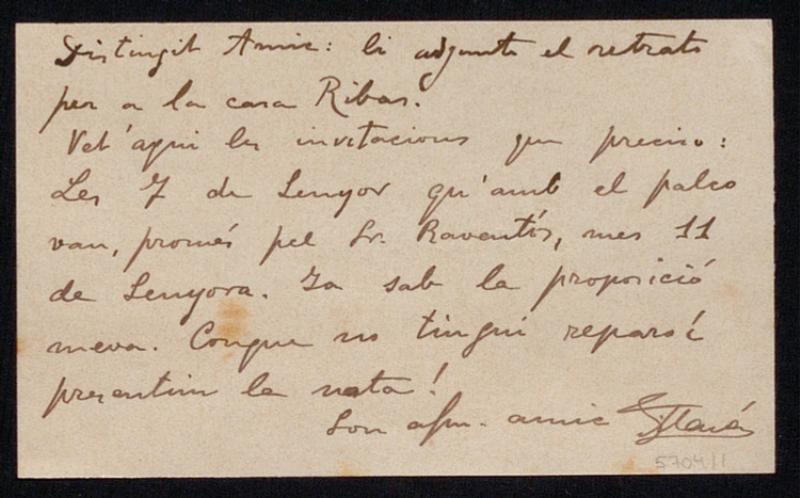 Distingit Amic: li adjunto el retrato
per a la casa Ribas.
Vet'aqui les invitacions que preciso:
Les 7 de Senyor qu'amb el palco
van, promés pel Sr. Raventós, mes 11
de Senyora. Ja sab la proporició
meva. Conque no tingui reparo i
presentim la nota!
Son afm. amic
5704/1